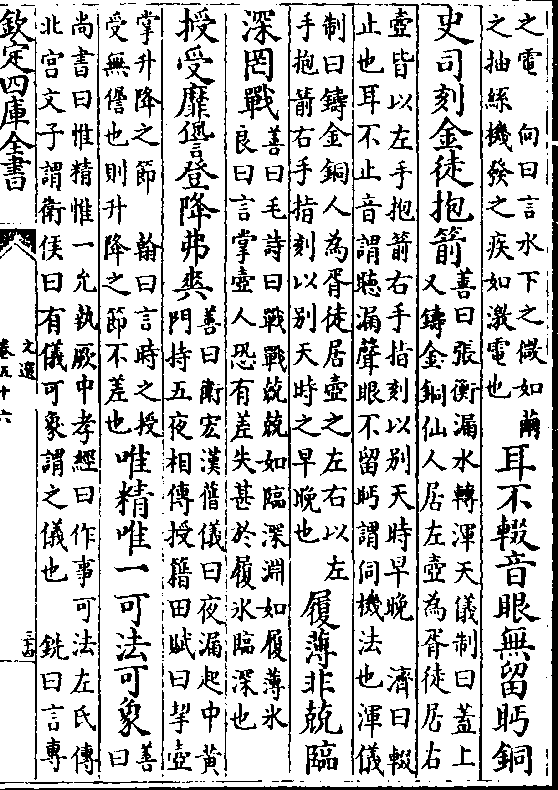 之電　向曰言水下之微如繭
之抽絲機發之疾如激電也
耳不輟音眼無留眄銅
史司刻金徒抱箭
善曰張衡漏水轉渾天儀制曰蓋上
又鑄金銅仙人居左壺為胥徒居右
壺皆以左手抱箭右手指刻以别天時早晚　濟曰輟
止也耳不止音謂聽漏聲眼不留眄謂伺機法也渾儀
制曰鑄金銅人為胥徒居壺之左右以左
手抱箭右手指刻以别天時之早晚也
履薄非兢臨
深罔戰
善曰毛詩曰戰戰兢兢如臨深淵如履薄氷
良曰言掌壺人恐有差失甚於履氷臨深也
授受靡諐登降弗爽
善曰衛宏漢舊儀曰夜漏起中黄
門持五夜相傳授籍田賦曰挈壺
掌升降之節　翰曰言時之授
受無諐也則升降之節不差也
唯精唯一可法可象
善
曰
尚書曰惟精惟一允執厥中孝經曰作事可法左氏傳
北宫文子謂衛侯曰有儀可象謂之儀也　銑曰言專
欽定四庫全書
文選
卷五十六